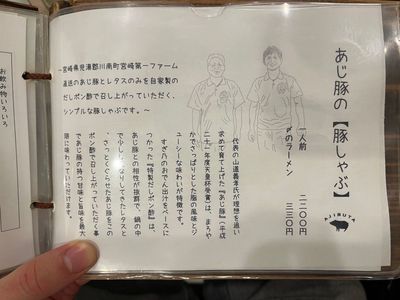 あじ豚の【豚しゃぶ】
一人前 二二〇〇円
〆のラーメン 三三〇円
AJIBUTA
代表の山道義孝氏が理想を追い
求めて育て上げた『あじ豚』（平成
二十一年度天皇杯受賞）は、まろや
かでさっぱりとした脂の風味とジ
ューシーな味わいが特徴です。
すぎ乃のおでん出汁をベースに
つかった『特製だしポン酢』は、
あじ豚との相性が抜群で、鍋の中
で少ししんなりしてきたレタスと
、さっとくぐらせたあじ豚をこの
ポン酢で召し上がっていただく事
で豚の持つ甘味と旨味を最大
限に味わっていただけます。
～宮崎県児湯郡川南町宮崎第一ファーム
直送のあじ豚とレタスのみを自家製の
だしポン酢で召し上がっていただく、
シンプルな豚しゃぶです。～
お飲み物いろいろ